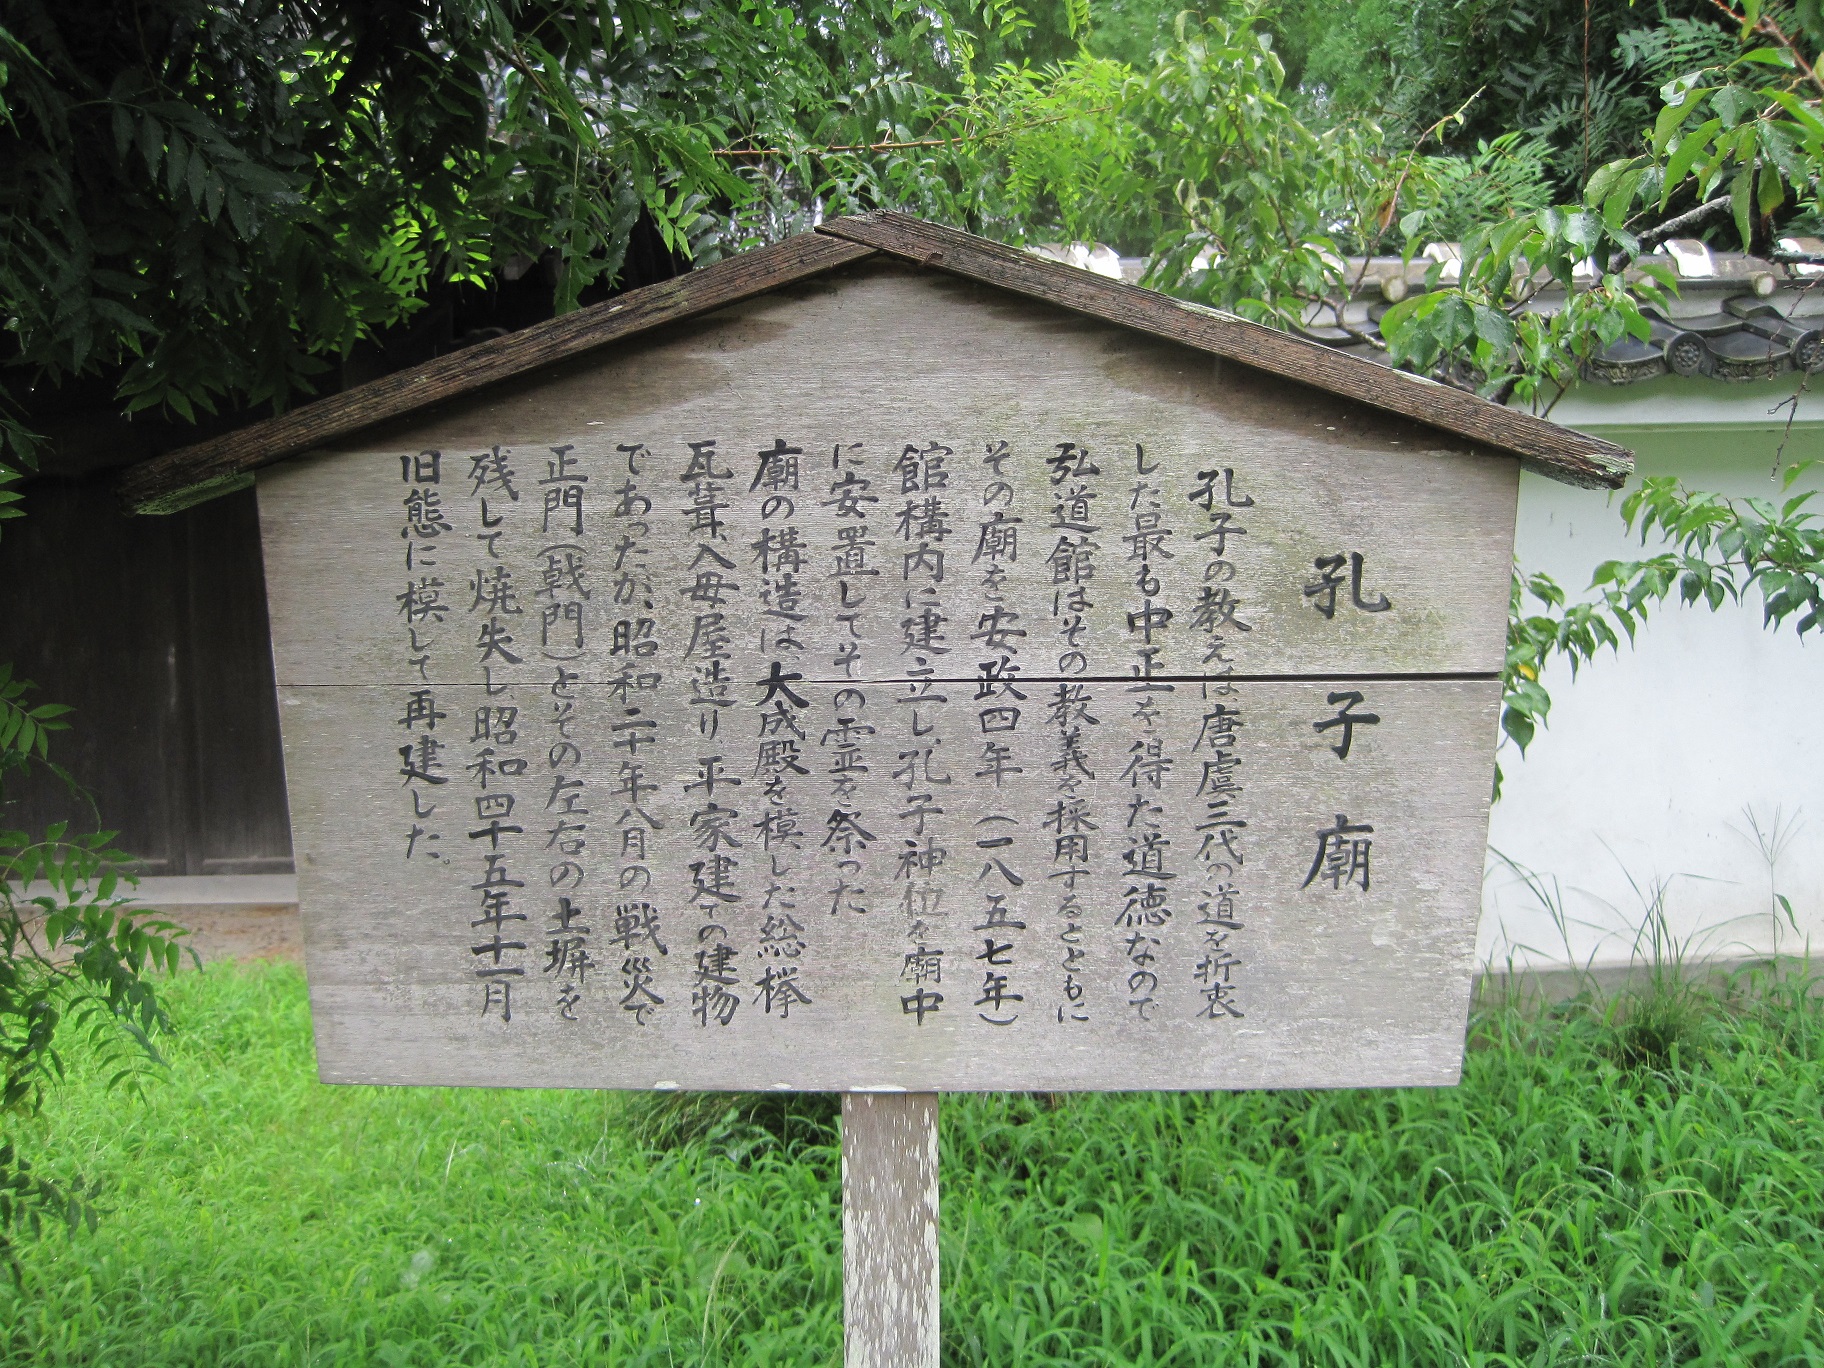 孔子廟
孔子の教えは唐虞三代の道を折衷
した最も中正を得た道徳なので
弘道館はその教義を採用するとともに
その廟を安政四年(一八五七年)
館構内に建立し、孔子神位を廟中
に安置してその霊を祭った
廟の構造は、大成殿を模した総欅
瓦葺、入母屋造り、平家建ての建物
であったが、昭和二十年八月の戦災で
正門(戟門)とその左右の土塀を
残して焼失し、昭和四十五年十一月
旧態に模して再建した。